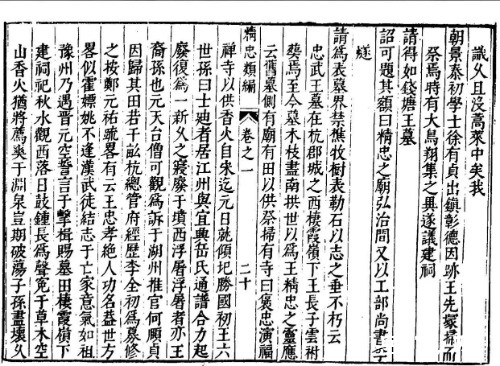 識久且沒蒿萊中矣我
朝景泰初學士徐有貞出鎮彰德因跡王先塚掃而
祭焉時有大鳥翔集之異遂議建祠
請得如錢塘王墓
詔可題其額曰精忠之廟弘治間又以工部尚書
鐩
請為表墓界禁樵牧樹表勒石以志之垂不朽云
忠武王墓在杭郡城之西棲霞嶺下王長子雲祔
葬焉至今墓木枝盡南拱世以為王精忠之靈應
云舊墓側有廟有田以供祭掃有寺曰褒忠演福
精忠類編 卷之一 二十
禪寺以供香火自宋迄元日就傾圮勝國初王六
世孫曰士廸者居江州與宜興岳氏通譜合力起
廢復為一新久之寢廢于墳西浮屠浮屠者亦王
裔孫也元天台僧可觀為訴于湖州推官何頤貞
因歸其田若干畝杭總管府經歷李全初為墓修
之按鄭元祐疏畧有云王忠孝絕人功名益世方
畧似霍嫖姚不逢漢武徒結志于亡家意氣如祖
豫州乃遇晋元空誓言于擊楫賜墓田棲霞嶺下
建祠祀秋水觀西落日鼓鐘長為聲寃于草木空
山香火猶將薦爽于淵泉豈期破蕩子孫盡壞久